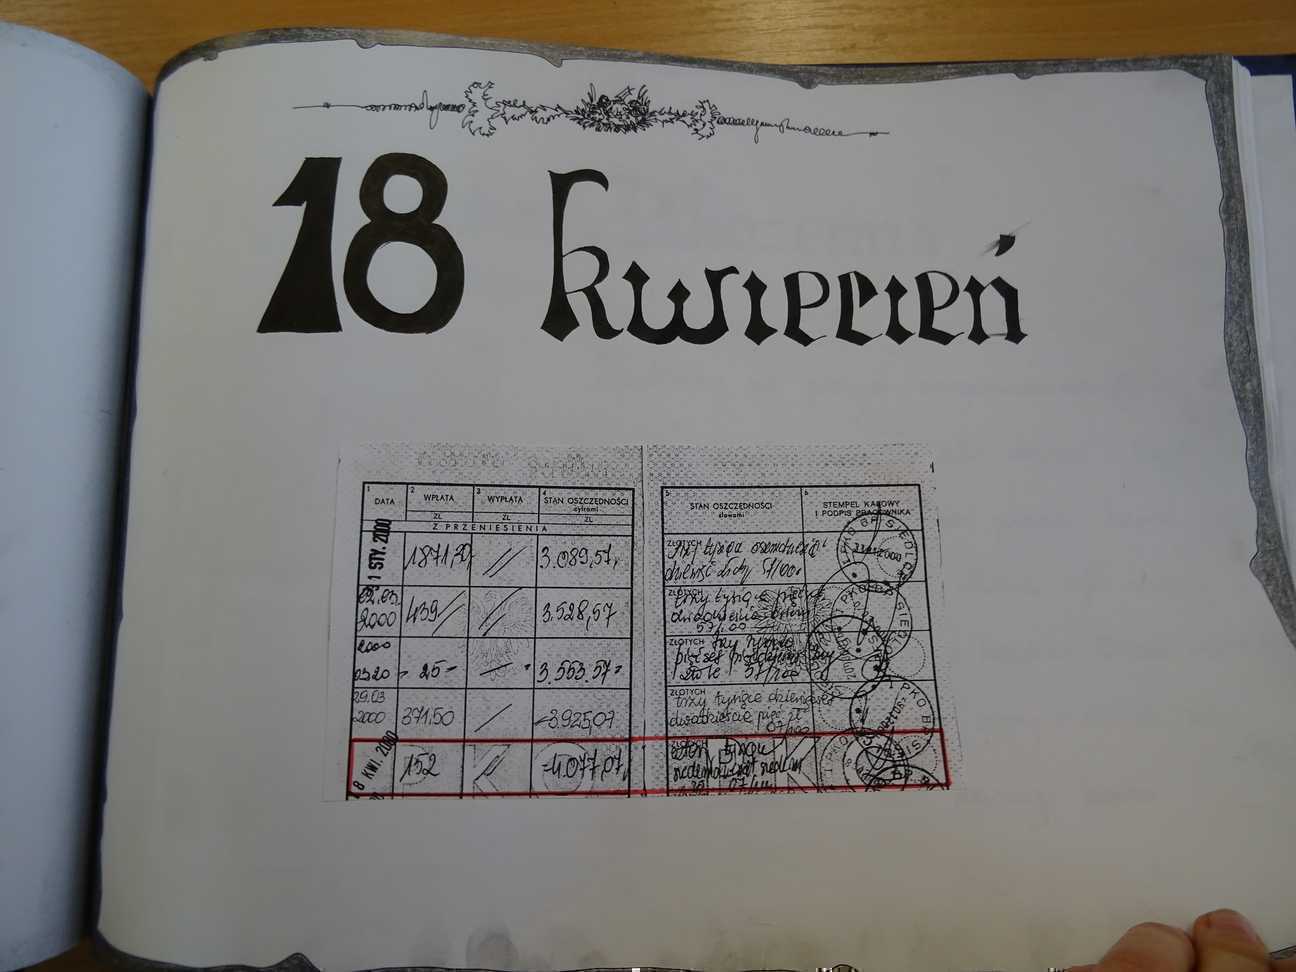 18 kwiecień
1 DATA 2 WPŁATA 3 WYPŁATA 4 STAN OSZCZĘDNOŚCI
cyframi
ZŁ ZŁ ZŁ
Z PRZENIESIENIA
1 STY. 2000 1871,30 3.089,57
02.03 2000 439 3.528,57
2000 0320 25- 3.553.57
29.03 2000 371.50 3925,07
8 KWI. 2000 152 4.077,07
5 STAN OSZCZĘDNOŚCI 6 STEMPEL KASOWY
słowami I PODPIS PRACOWNIKA
ZŁOTYCH trzy tysiące
57/100
ZŁOTYCH trzy tysiące pięćset
dwadzieścia osiem
57/100
ZŁOTYCH trzy tysiące
pięćset pięćdziesiąt trzy
złote 57/100
ZŁOTYCH trzy tysiące dziewięćset
dwadzieścia pięć zł
07/100
cztery tysiące
siedemdziesiąt siedem
PKO BP SIEDLCE